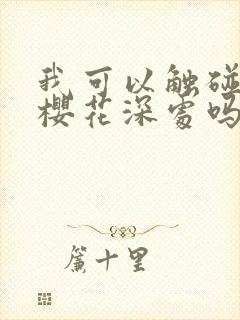 我可以触碰
樱花深处吗
簾十里